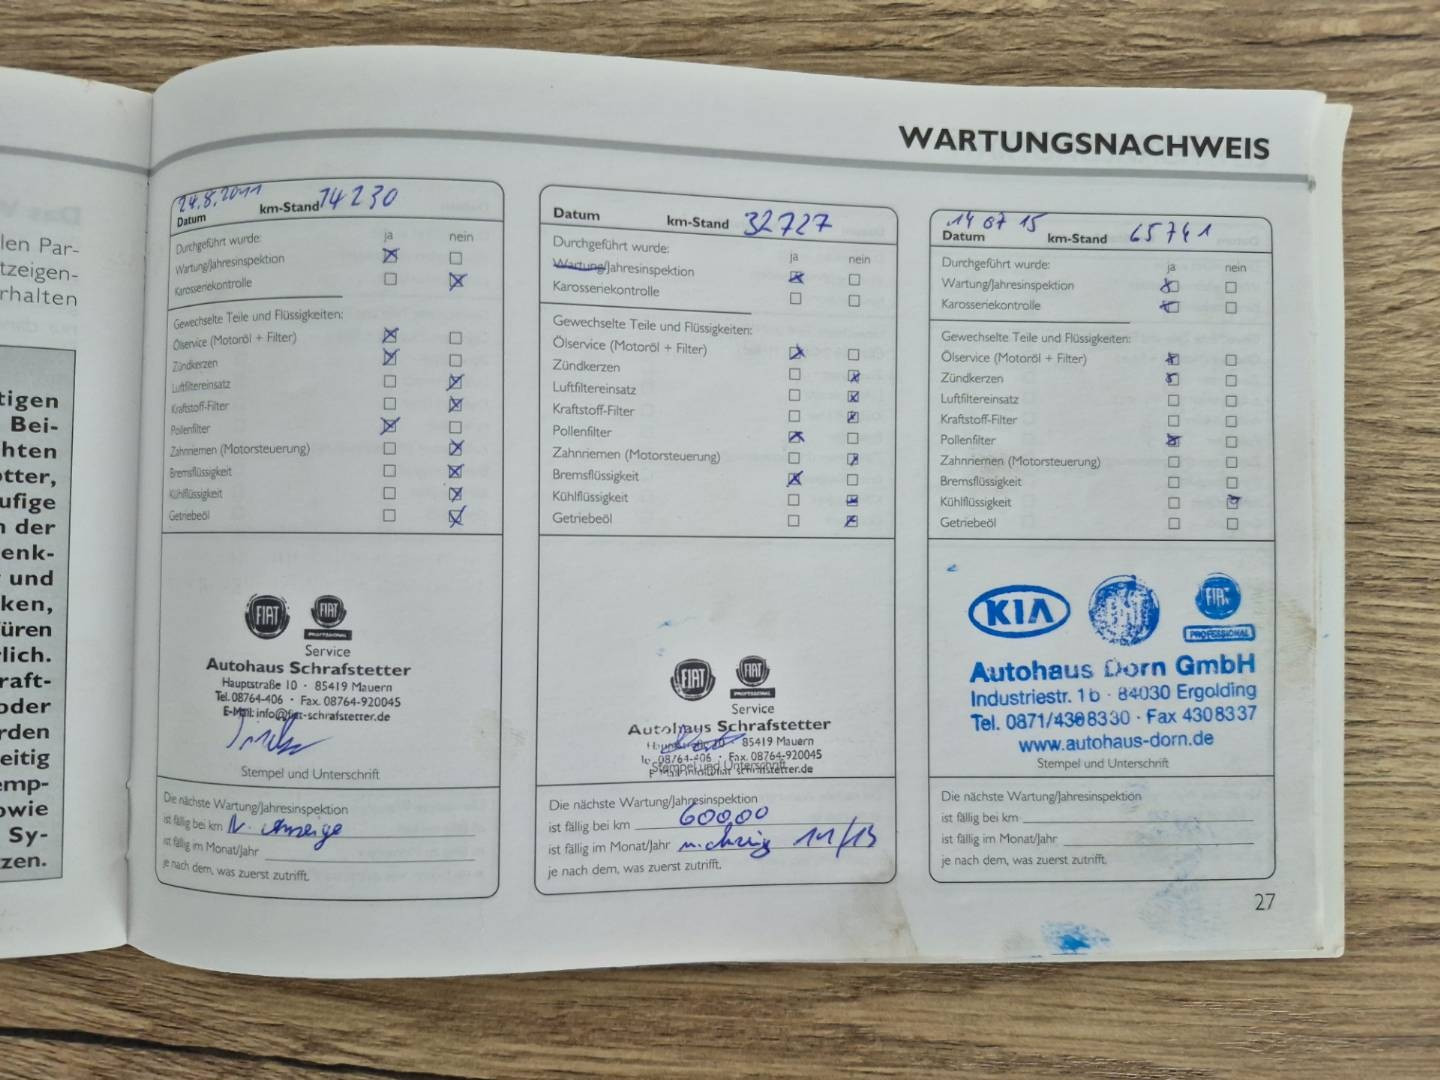 len Par-
tzeigen-
rhalten
tigen
Bei-
chten
otter,
ufige
n der
enk-
und
ken,
üren
lich.
raft-
oder
rden
eitig
emp-
owie
Sy-
zen.
WARTUNGSNACHWEIS
24.8.2011 14230
Datum km-Stand
Durchgeführt wurde: ja nein
Wartung/Jahresinspektion
Karosseriekontrolle
Gewechselte Teile und Flüssigkeiten:
Ölservice (Motoröl + Filter)
Zündkerzen
Luftfiltereinsatz
Kraftstoff-Filter
Pollenfilter
Zahnriemen (Motorsteuerung)
Bremsflüssigkeit
Kühlflüssigkeit
Getriebeöl
FIAT FIAT
PROFESSIONAL
Service
Autohaus Schrafstetter
Hauptstraße 10 · 85419 Mauern
Tel. 08764-406 · Fax. 08764-920045
E-Mail: info@fiat-schrafstetter.de
Stempel und Unterschrift
Die nächste Wartung/Jahresinspektion
ist fällig bei km N. Anzeige
ist fällig im Monat/Jahr
je nach dem, was zuerst zutrifft.
Datum km-Stand 32727
Durchgeführt wurde: ja nein
Wartung/Jahresinspektion
Karosseriekontrolle
Gewechselte Teile und Flüssigkeiten:
Ölservice (Motoröl + Filter)
Zündkerzen
Luftfiltereinsatz
Kraftstoff-Filter
Pollenfilter
Zahnriemen (Motorsteuerung)
Bremsflüssigkeit
Kühlflüssigkeit
Getriebeöl
FIAT FIAT
PROFESSIONAL
Service
Autohaus Schrafstetter
85419 Mauern
08764-406 · Fax. 08764-920045
Stempel und Unterschrift
schrafstetter.de
Die nächste Wartung/Jahresinspektion
ist fällig bei km 60000
ist fällig im Monat/Jahr 11/13
je nach dem, was zuerst zutrifft.
14 07 15 65741
Datum km-Stand
Durchgeführt wurde: ja nein
Wartung/Jahresinspektion
Karosseriekontrolle
Gewechselte Teile und Flüssigkeiten:
Ölservice (Motoröl + Filter)
Zündkerzen
Luftfiltereinsatz
Kraftstoff-Filter
Pollenfilter
Zahnriemen (Motorsteuerung)
Bremsflüssigkeit
Kühlflüssigkeit
Getriebeöl
KIA FIAT
PROFESSIONAL
Autohaus Dorn GmbH
Industriestr. 1b · 84030 Ergolding
Tel. 0871/4308330 · Fax 4308337
www.autohaus-dorn.de
Stempel und Unterschrift
Die nächste Wartung/Jahresinspektion
ist fällig bei km
ist fällig im Monat/Jahr
je nach dem, was zuerst zutrifft.
27